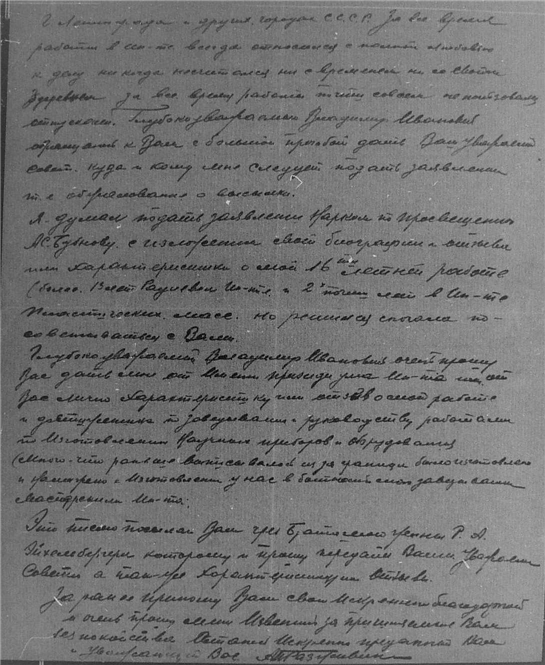 г. Ленинграда и других городах СССР. За все время
работы в ин-те всегда относился с полной любовью
к делу никогда не считался ни с временем ни со своим
здоровьем за все время работы почти совсем не пользовался
отпуском. Глубокоуважаемый Владимир Иванович
обращаюсь к Вам с большой просьбой дать Ваш
совет. куда и кому мне следует подать заявление
о высылке.
Я думаю подать заявление Наркому просвещения
А.С. Бубнову с изложением своей биографии и отзывы
или характеристики о моей 16 ти летней работе
(более 13 лет Радиевом Ин-те и 2 почти лет в Ин-те
Пластических масс. но решился сначала по-
советоваться с Вами.
Глубокоуважаемый Владимир Иванович очень прошу
Вас дать мне от имени президиума Ин-та от
Вас лично характеристику или отзыв о моей работе
и по заведыванию и руководству работами
по изготовлению Научных приборов и оборудования
(Много что раньше выписывалось из за границы было изготовлено
и изготовлении у нас в бытность мою заведывании
Мастерскими Ин-та.
Это письмо посылаю Вам через брата моей жены Р. А.
Эйхельбергера которому и прошу передать Ваши
Советы а также Характеристику или Отзывы.
Заранее приношу Вам свои Искренн благодарности
и очень прошу меня Извенить за причинение Вам
безпокойства Остаюсь Искренно преданный Вам
и Уважающий Вас